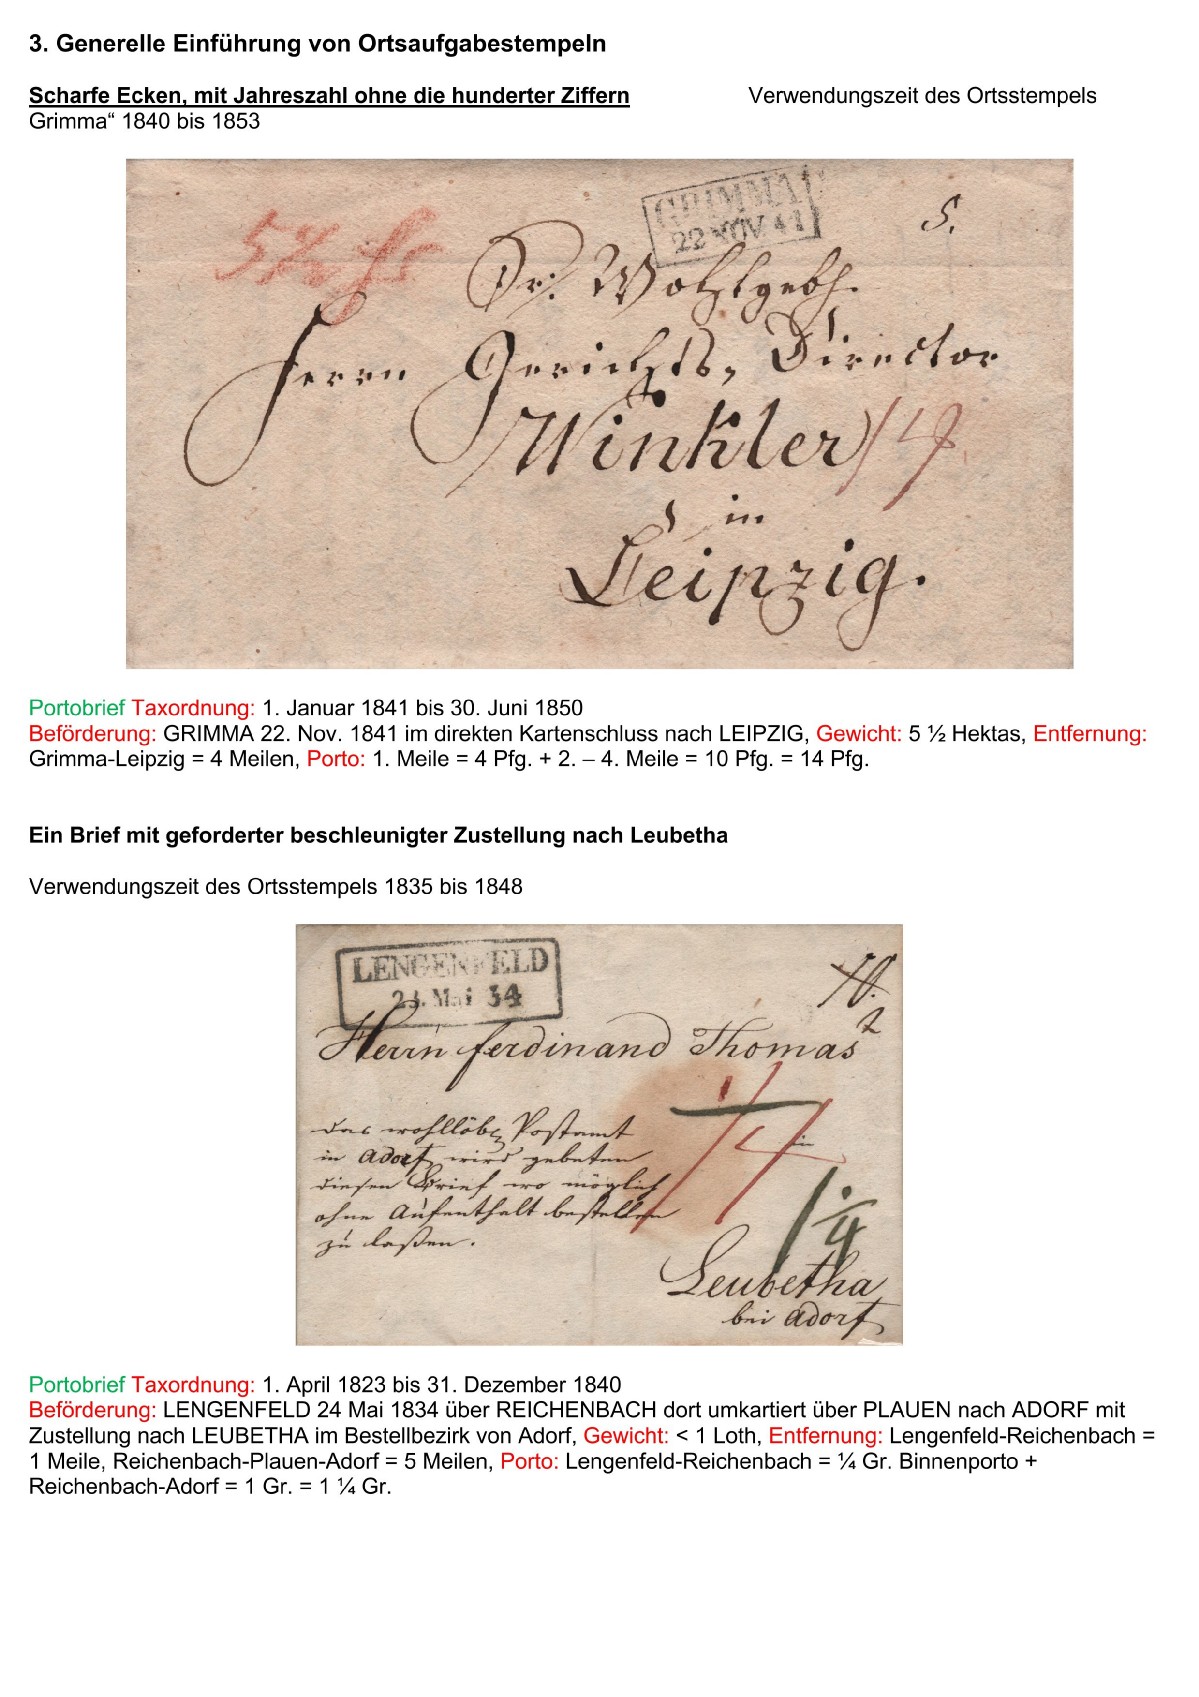 3. Generelle Einführung von Ortsaufgabestempeln
Scharfe Ecken, mit Jahreszahl ohne die hunderter Ziffern Verwendungszeit des Ortsstempels
Grimma“ 1840 bis 1853
GRIMMA
22 NOV 41
5.
5½
Sr. Wohlgebh.
Herrn Gerichts, Director
Winkler
14
in
Leipzig.
Portobrief Taxordnung: 1. Januar 1841 bis 30. Juni 1850
Beförderung: GRIMMA 22. Nov. 1841 im direkten Kartenschluss nach LEIPZIG, Gewicht: 5 ½ Hektas, Entfernung:
Grimma-Leipzig = 4 Meilen, Porto: 1. Meile = 4 Pfg. + 2. – 4. Meile = 10 Pfg. = 14 Pfg.
Ein Brief mit geforderter beschleunigter Zustellung nach Leubetha
Verwendungszeit des Ortsstempels 1835 bis 1848
LENGENFELD
24. Mai 34
Herrn Ferdinand Thomas
das wohllöbl. Postamt
in Adorf wird gebeten
diesen Brief wo möglich
ohne Aufenthalt bestellen
zu laßen.
in
Leubetha
bei Adorf
Portobrief Taxordnung: 1. April 1823 bis 31. Dezember 1840
Beförderung: LENGENFELD 24 Mai 1834 über REICHENBACH dort umkartiert über PLAUEN nach ADORF mit
Zustellung nach LEUBETHA im Bestellbezirk von Adorf, Gewicht: < 1 Loth, Entfernung: Lengenfeld-Reichenbach =
1 Meile, Reichenbach-Plauen-Adorf = 5 Meilen, Porto: Lengenfeld-Reichenbach = ¼ Gr. Binnenporto +
Reichenbach-Adorf = 1 Gr. = 1 ¼ Gr.